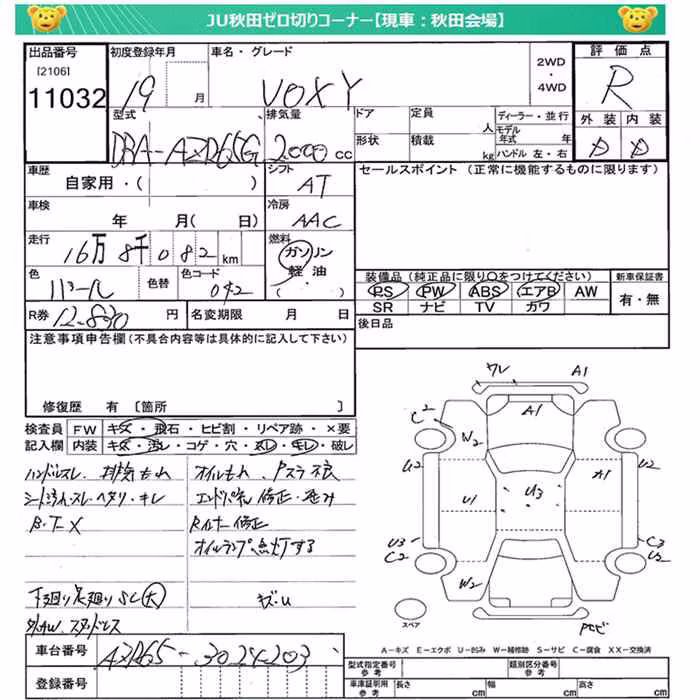 JU秋田ゼロ切りコーナー【現車：秋田会場】
出品番号 初度登録年月 車名・グレード 評価点
[2106]
11032 19 月 VOXY 2WD・4WD R
型式 排気量 ドア 定員 人 ディーラー・並行 外装 内装
DBA-AZR65G 2000 cc 形状 積載 kg モデル年式 年 ハンドル 左・右 D D
車歴 シフト セールスポイント (正常に機能するものに限ります)
自家用・( ) AT
車検 冷房
年 月( 日) AAC
走行 燃料
16万 8千 0 8 2 km ガソリン
軽・油
( )
色 色替 色コード 装備品 (純正品に限り○をつけてください) 新車保証書
パール 042 PS PW ABS エアB AW 有・無
SR ナビ TV カワ
R券 12.830 円 名変期限 月 日 後日品
注意事項申告欄 (不具合内容等は具体的に記入して下さい)
修復歴 有 [箇所 ]
検査員 FW キズ・飛石・ヒビ割・リペア跡・×要
記入欄 内装 キズ・汚レ・コゲ・穴・スレ・キレ・破レ
ハンドルスレ、排気もれ オイルもれ、
シート ヘタリ・キレ 修正・歪み
B・T・X 修正
オイルランプ点灯する
下廻り足廻りSC(大) キズ・U
外AW、スタッドレス
ワレ A1
C2 A1
W2
U2 U2
A1
U1 U3
U3 C3
C2 U2
W2
スペア
A－キズ E－エクボ U－凹み W－補修跡 S－サビ C－腐食 XX－交換済
車台番号 AZR65-3024203
型式指定番号 参考 類別区分番号 参考
登録番号 車庫証明用 参考 長さ cm 幅 cm 高さ cm